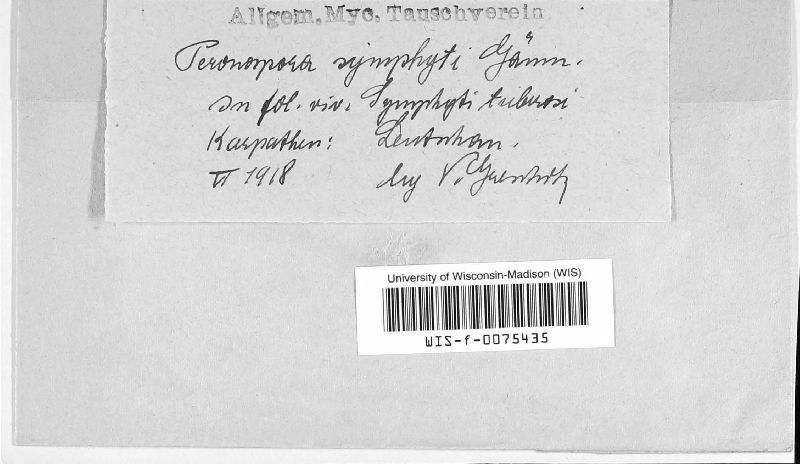 Allgem. Myc. Tauschverein
Peronospora symphyti Gäum.
In fol. viv. Symphyti tuberosi
Karpathen: Leutschau.
VI 1918 leg V. Greschik
University of Wisconsin-Madison (WIS)
WIS-f-0075435